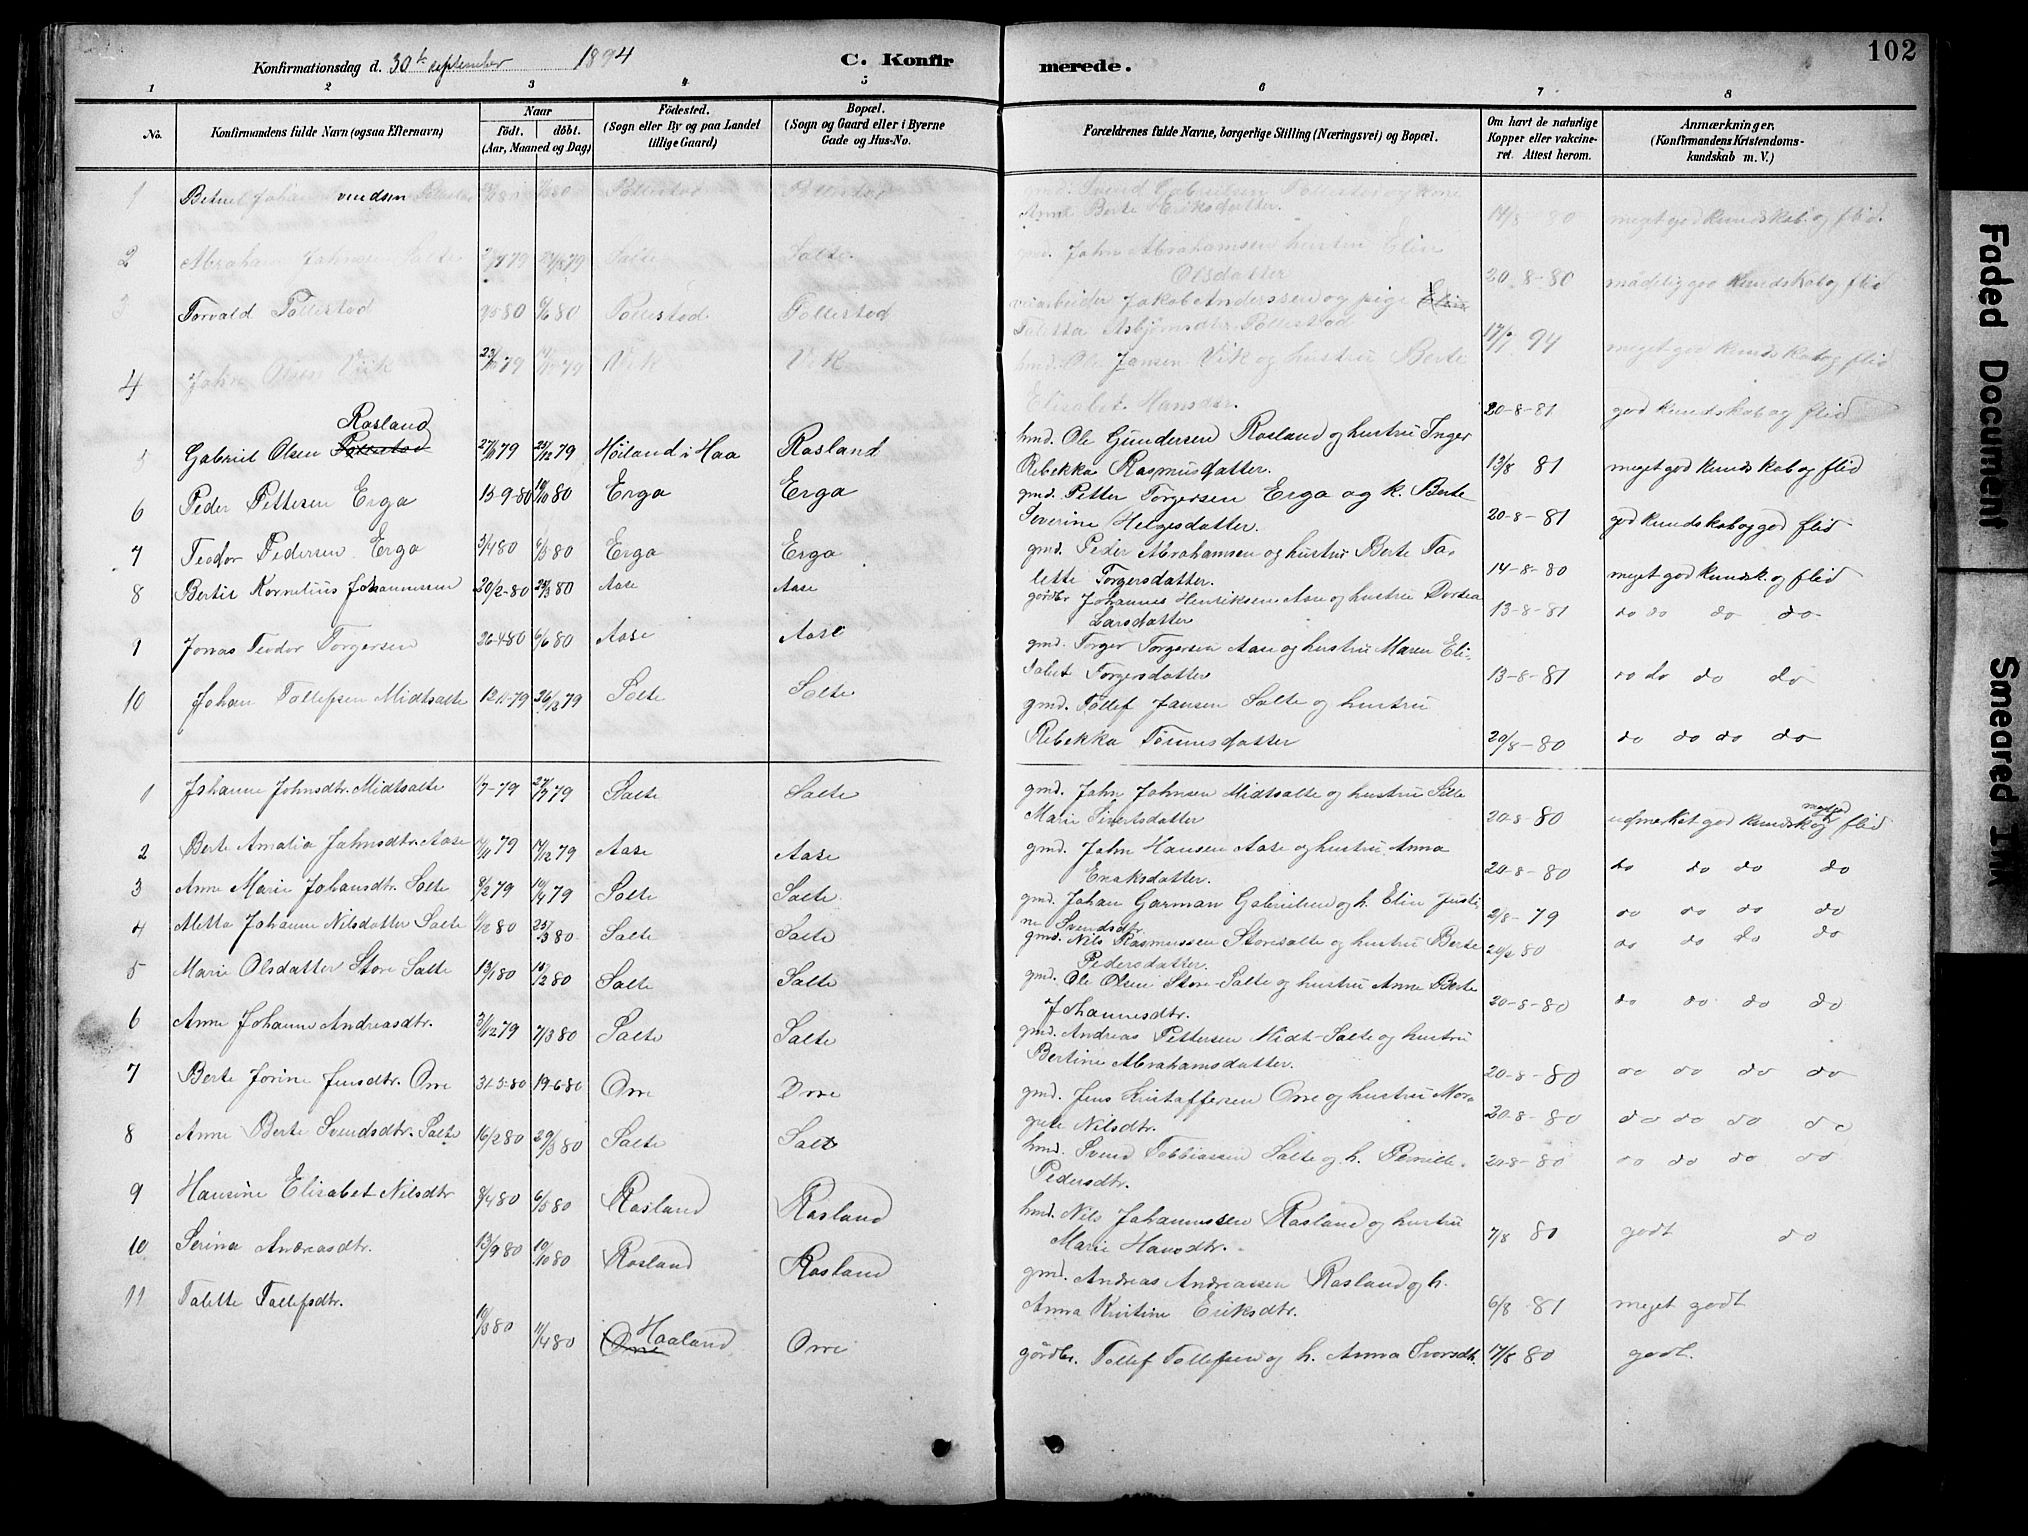 102
Konfirmationsdag d. 30te september 1894 C. Konfirmerede.
1 2 3 4 5 6 7 8
No. Konfirmandens fulde Navn (ogsaa Efternavn) Naar födt. döbt. (Aar, Maaned og Dag) Födested. (Sogn eller By og paa Landet tillige Gaard) Bopæl. (Sogn og Gaard eller i Byerne Gade og Hus-No. Forældrenes fulde Navne, borgerlige Stilling (Næringsvei) og Bopæl. Om havt de naturlige Kopper eller vakcineret. Attest herom. Anmærkninger. (Konfirmandens Kristendomskundskab m. V.)
1 Johan vendsen Pollestad Pollestad Pollestad Svend Gabrielsen
Anne Berte Eriksdatter. 14/8-80 meget god kundskab og flid.
2 Abraham Johnsen Salte Salte Salte gmd. John Abrahamsen hustru Elin
Olsdatter 20-8-80 mådelig god kundskab og flid
3 Torvald Pollestad Pollestad Pollestad veiarbeider Jakob Anderssen og pige
Taletta Asbjørnsdtr Pollestad 94 meget god kundskab og flid
4 John Olsen Vik 79 Vik Vik hmd. Ole Jansen Vik og hustru Berte
Elisabet Hansdtr. 20-8-81 god kundskab og flid
Rosland
5 Gabriel Olsen Pollestad 79 79 Høiland i Haa Rosland hmd. Ole Gundersen Rosland og hustru Inger
Rebekka Rasmusdatter. 13/8 81 meget god kundskab og flid
6 Peder Pettesen Erga 15-9-80 19/10 80 Erga Erga gmd. Petter Torgersen Erga og k. Berte
Severine Helgesdatter. 20-8-81 god kundskab og god flid
7 Teodor Pedersen Erga 3/4 80 6/5 80 Erga Erga gmd. Peder Abrahamsen og hustru Berte Ta-
lette Torgersdatter. 14-8-80 meget god kundsk. og flid
8 Bertil Kornelius Johannessen 20/2-80 80 Aase Aase gårdbr Johannes Henriksen Aase og hustru Dortea
Larsdatter 13-8-81 do do do do
9 Jonas Teodor Torgersen 26-4-80 6/6 80 Aase Aase gmd. Torger Torgersen Aase og hustru Maren Eli-
sabet Torgersdatter 13-8-81 do do do do
10 Johan Tollefsen Midtsalte 12-11-79 26/12 79 Salte Salte gmd. Tollef Jansen Salte og hustru
Rebekka Tønnesdatter 20/8-80 do do do do
1 Johanne Johnsdtr. Midtsalte 79 79 Salte Salte gmd. John Johnsen Midtsalte og hustru Sille
Marie Sivertsdatter 20-8-80 udmerket god kundsk og meget god flid
2 Berte Amalia Johnsdtr. Aase 79 79 Aase Aase gmd. John Hansen Aase og hustru Anna
Enoksdatter. 20-8-80 do do do do
3 Anne Marie Johansdtr. Salte 79 79 Salte Salte gmd. Johan Garman Gabrielsen og h. Elin Justi-
ne Svendsdtr. 2/8-79 do do do do
4 Metta Johanne Nilsdatter Salte 80 80 Salte Salte gmd. Nils Rasmussen Storesalte og hustru Berte
Pedersdatter. 80 do do do do
5 Marie Olsdatter Store Salte 13/1 80 80 Salte Salte gmd. Ole Olsen Store-Salte og hustru Anne Berte
Johannesdtr. 20-8-80 do do do do
6 Anne Johanne Andreasdtr. 3/12 79 7/3 80 Salte Salte gmd. Andreas Pettersen Midt-Salte og hustru
Bertine Abrahamsdatter. 20-8-80 do do do do
7 Berte Jorine Jensdtr. Orre 31-5-80 19-6-80 Orre Orre gmd. Jens Kristoffersen Orre og hustru Mar-
grete Nilsdtr. 20-8-80 do do do do
8 Anne Berte Svendsdtr. Salte 16/2 80 29/3 80 Salte Salte hmd. Svend Tobbiassen Salte og h. Pernille
Pedersdtr. 20-8-80 do do do do
9 Hansine Elisabet Nilsdtr 80 6/5 80 Rosland Rosland hmd. Nils Johannessen Rosland og hustru
Marie Hansdtr. 7/8 80 godt do
10 Serina Andreasdtr. 13/9 80 19/10 80 Rosland Rosland gmd. Andreas Andreassen Rosland og h.
Anna Kristine Eriksdtr. 6/8-81 meget godt
11 Talette Tollefsdtr. 80 11/4 80 Orre Haaland Orre gårdbr. Tollef Tollefsen og h. Anna Ivarsdtr. 17/8 80 godt.
Faded Document
Smeared Ink